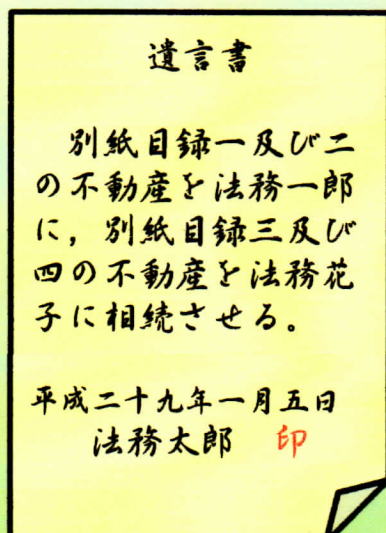 遺言書
別紙目録一及び二
の不動産を法務一郎
に，別紙目録三及び
四の不動産を法務花
子に相続させる。
平成二十九年一月五日
法務太郎 印